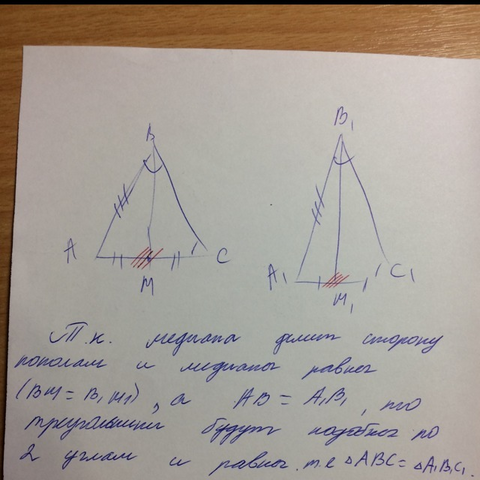 B
B₁
A
M
C
A₁
M₁
C₁
Т.к. медиана делит сторону
пополам и медианы равны
(BM = B₁M₁), а AB = A₁B₁, то
треугольники будут подобны по
2 углам и равны. т.е △ABC = △A₁B₁C₁